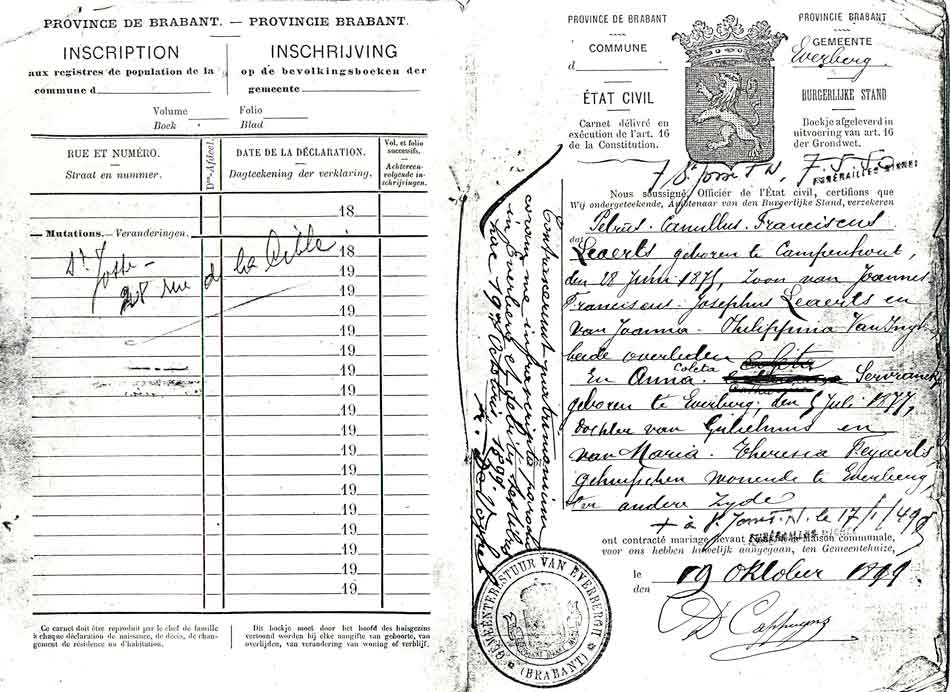 PROVINCE DE BRABANT. — PROVINCIE BRABANT.
INSCRIPTION
aux registres de population de la
commune d
INSCHRIJVING
op de bevolkingsboeken der
gemeente
Volume Folio
Boek Blad
RUE ET NUMÉRO.
Straat en nummer.
DATE DE LA DÉCLARATION.
Dagteekening der verklaring.
Vol. et folio
successifs.
Achtereen-
volgende in-
schrijvingen.
18
Mutations. — Veranderingen.
18
St Josse
19
28 rue d la Cible
19
19
19
19
19
19
19
19
19
19
19
19
19
19
19
19
19
Ce carnet doit être reproduit par le chef de famille
à chaque déclaration de naissance, de décès, de chan-
gement de résidence ou d'habitation.
Dit boekje moet door het hoofd des huisgezins
vertoond worden bij elke aangifte van geboorte, van
overlijden, van verandering van woning of verblijf.
PROVINCE DE BRABANT
COMMUNE
d
ÉTAT CIVIL
Carnet délivré en
exécution de l'art. 16
de la Constitution.
PROVINCIE BRABANT
GEMEENTE
Everberg
BURGERLIJKE STAND
Boekje afgeleverd in
uitvoering van art. 16
der Grondwet.
Nous soussigné, Officier de l'État civil, certifions que
Wij ondergeteekende, Ambtenaar van den Burgerlijke Stand, verzekeren
Petrus Camillus Franciscus
dat
Leaerts geboren te Campenhout,
den 28 Juni 1875, Zoon van Joannes
Franciscus Josephus Leaerts en
van Joanna Philippina
beide overleden
En Anna Coleta Servranckx
geboren te Everberg, den 5 Juli 1877,
dochter van Gulielmus en
van Maria Theresia Feyaerts
wonende te Everberg,
ter andere Zyde
ont contracté mariage devant Nous, en la Maison communale,
voor ons hebben huwelijk aangegaan, ten Gemeentehuize,
le
den
19 Oktober 1899.
D. Cappuyns
Contraxerunt matrimonium
coram me infrascripto parocho
in Everberg et
hac 19a Octobris 1899.
GEMEENTEBESTUUR VAN EVERBERGH
(BRABANT)